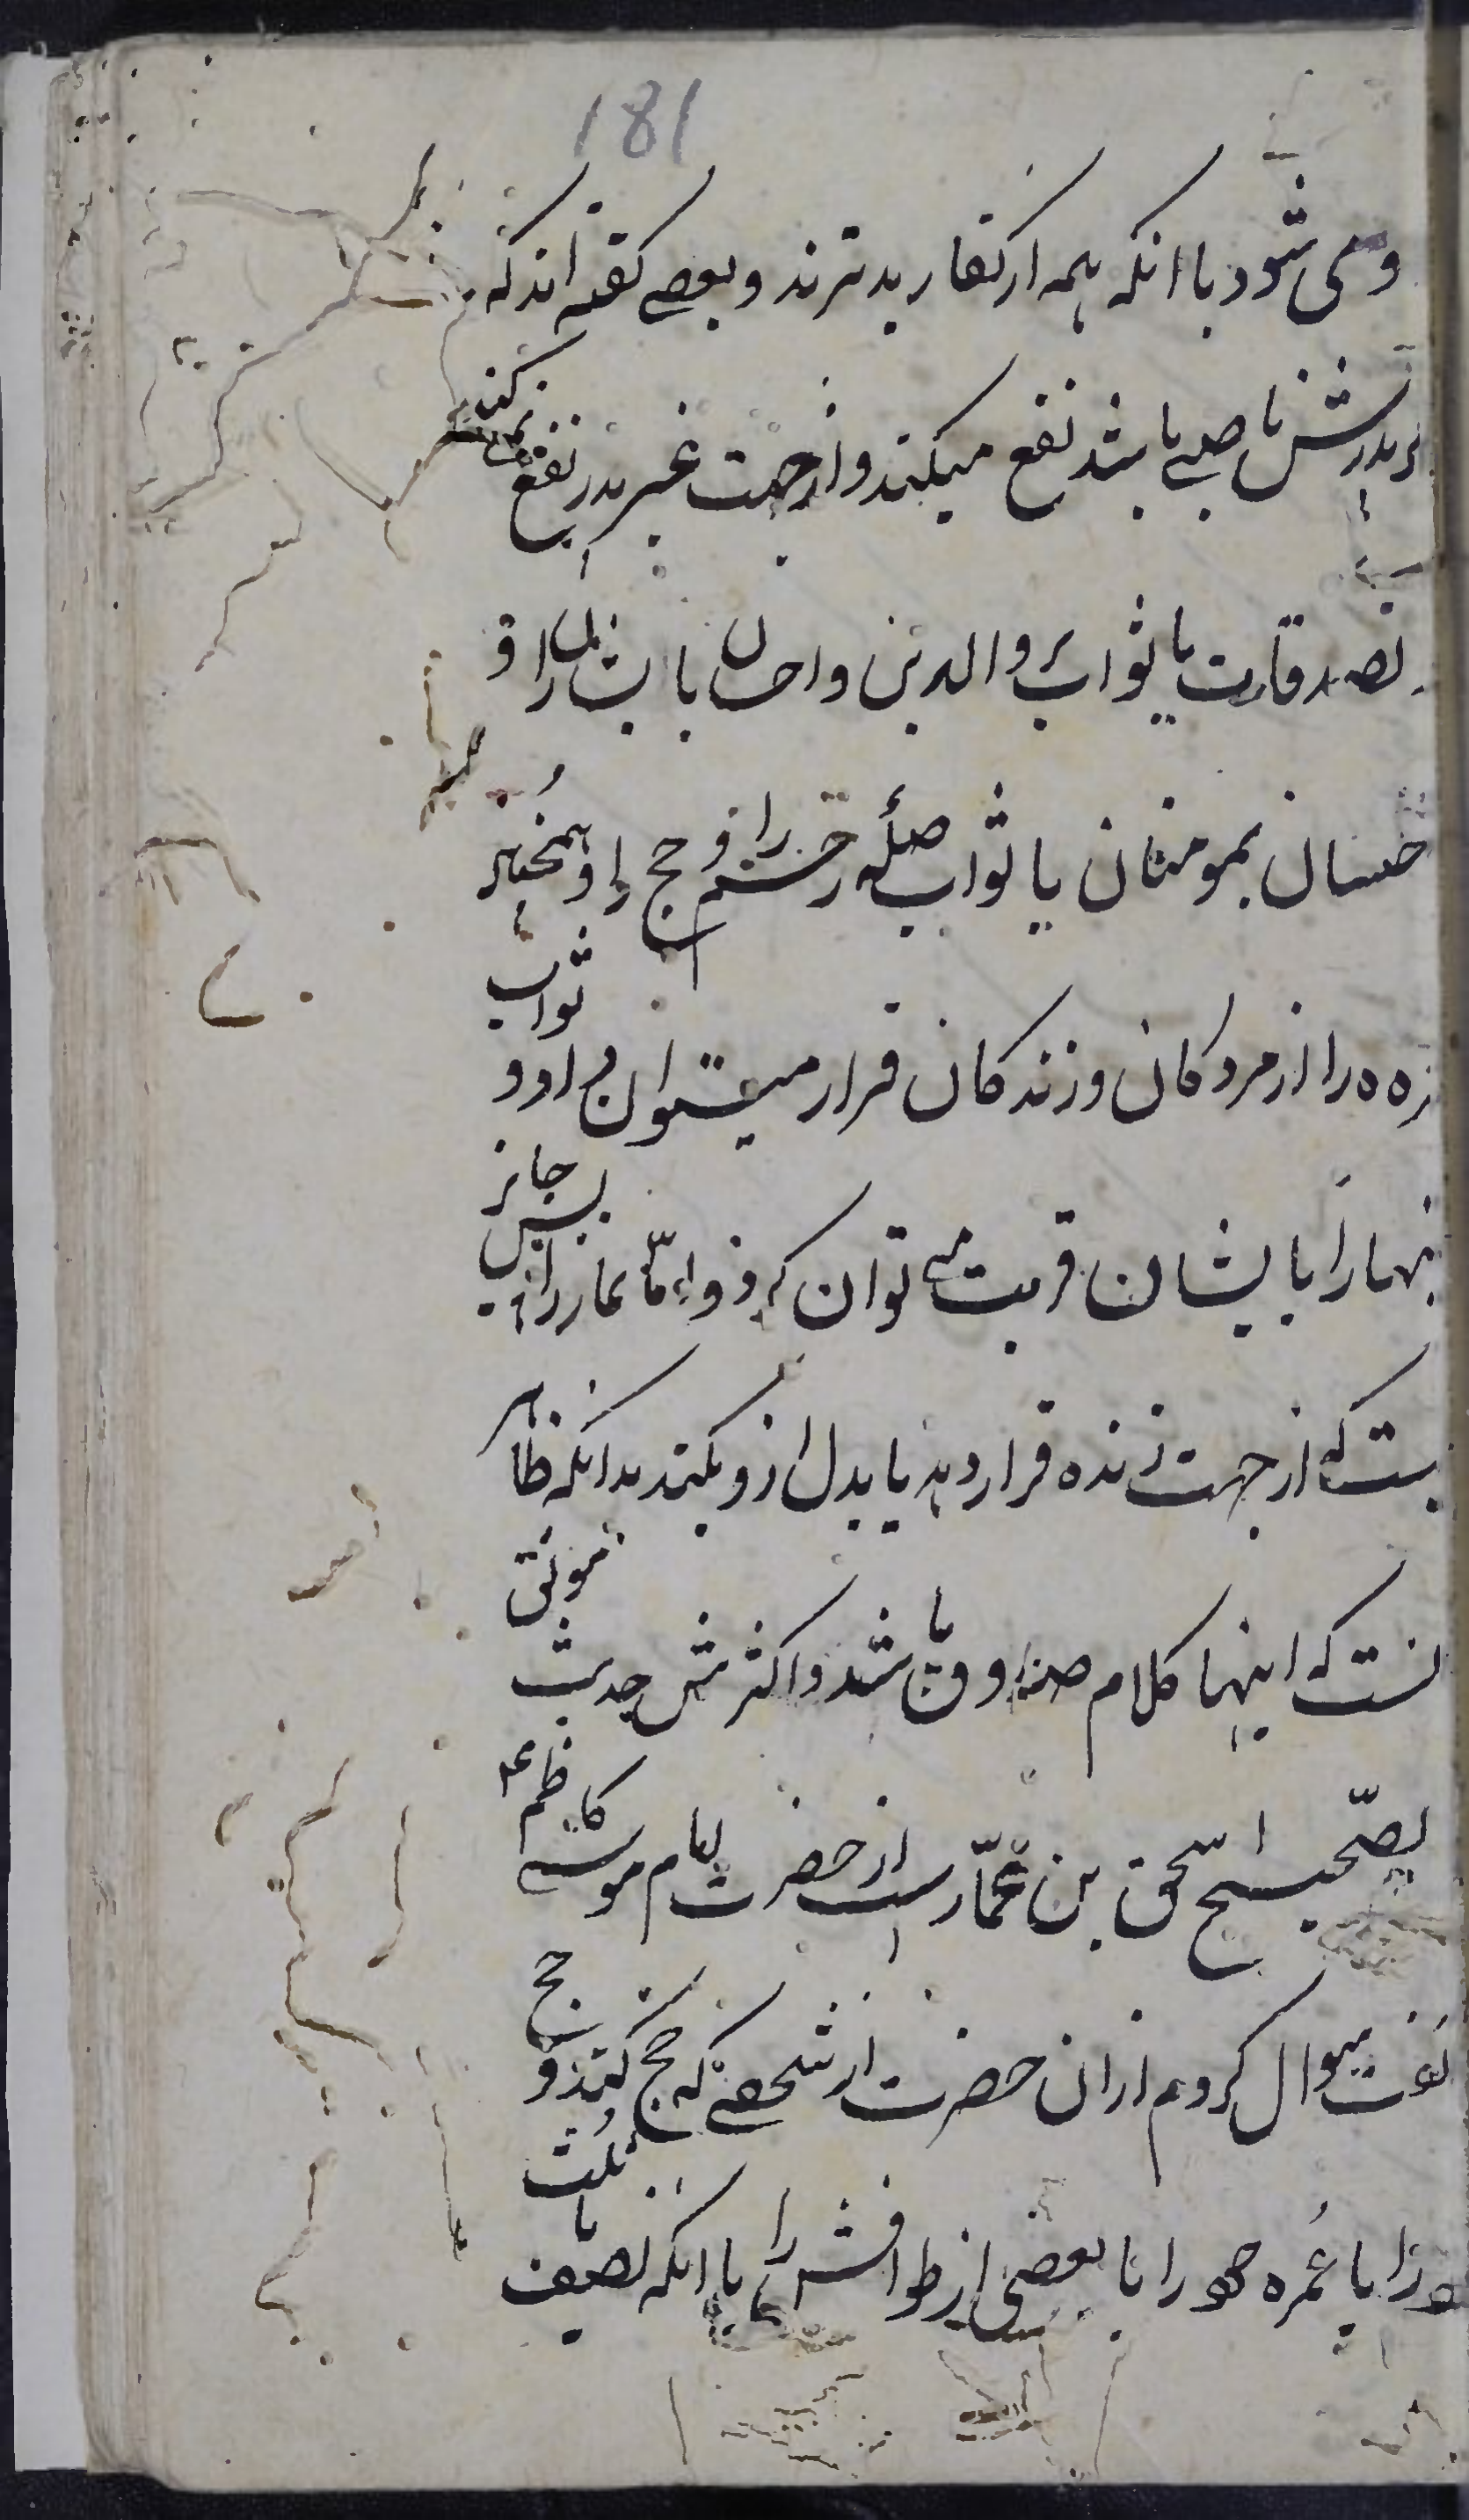 181
ومی شود با انکه همه از کفار بدترند وبعضی گفته اند که
پدرش ناصبی باشد نفع میکند واز جهت غیر پدر نفع نمی کند
تصدقات یا ثواب بر والدین واحسان بایشان را و
احسان بمومنان یا ثواب صله رحم را و حج را و همچنین
روزه را از مردکان وزندکان قرار میتوان داد و ثواب
اینها را بایشان قربت می توان کرد و امّا نماز را پس جایز
نیست که از جهت زنده قرار دهند یا بدل از و بکنند بدانکه ظاهر
انست که اینها کلام صدوق باشد واکثرش حدیث موثق
کالصّحیح اسحق بن عمّار است از حضرت امام موسی کاظم ع
گفت سوال کردم از ان حضرت از شخصی که حج کند و حج
خود را یا عُمره خود را یا بعضی از طوافش را با انکه نصف یا ثلث